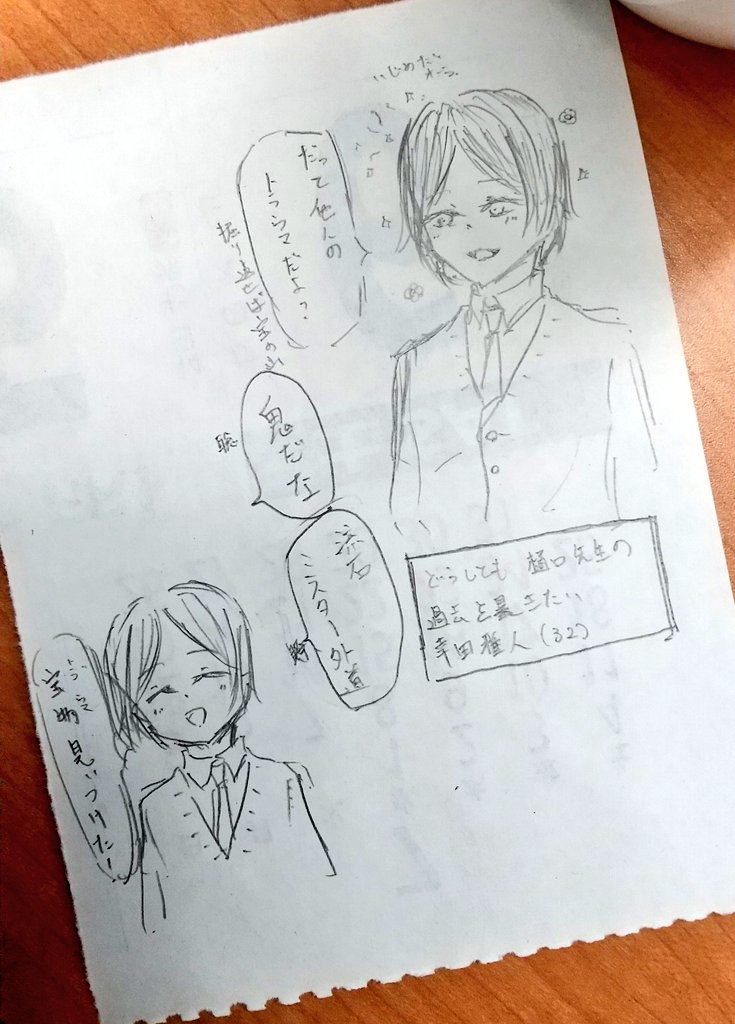 いじめだ
オーラ
だって他人の
トラウマだよ？
掘り返せば宝の山
鬼だな
聡
流石
ミスター外道
どうしても 樋口先生の
過去を暴きたい
幸田雅人(32)
トラウマ
宝物見いつけた！